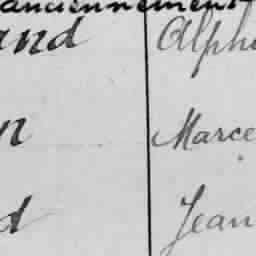 anciennement
and Alph
n Marce
d Jean